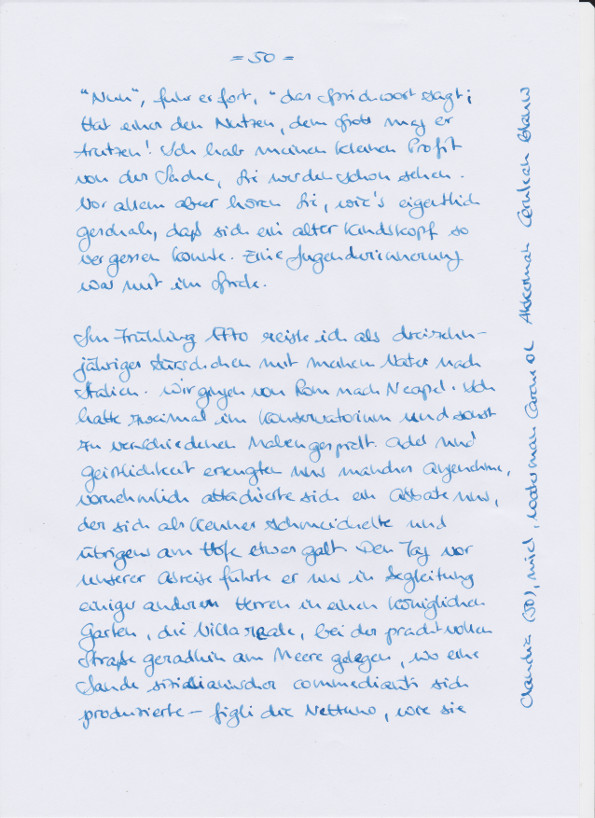 = 50 =
"Nun", fuhr er fort, "das Sprichwort sagt;
Hat einer den Nutzen, dem Spott mag er
trutzen! Ich hab meinen kleinen Profit
von der Sache, Sie werden schon sehen.
Vor allem aber hören Sie, wie's eigentlich
geschah, daß sich ein alter Kindskopf so
vergessen konnte. Eine Jugenderinnerung
war mit im Spiele.
Im Frühling 1770 reiste ich als dreizehn-
jähriger Bürschchen mit meinem Vater nach
Italien. Wir gingen von Rom nach Neapel. Ich
hatte zweimal im Konservatorium und sonst
zu verschiedenen Malen gespielt. Adel und
Geistlichkeit erzeugten uns manches Angenehme,
vornehmlich attachierte sich ein Abbate uns,
der sich als Kenner schmeichelte und
übrigens am Hofe etwas galt. Den Tag vor
unserer Abreise führte er uns in Begleitung
einiger anderen Herren in einen königlichen
Garten, die Villa reale, bei der prachtvollen
Straße geradhin am Meere gelegen, wo eine
Bande sizilianischer commedianti sich
produzierte – figli di Nettuno, wie sie
Claudia (30), mied, Waterman Caran Akkerman Cerulean Blauw